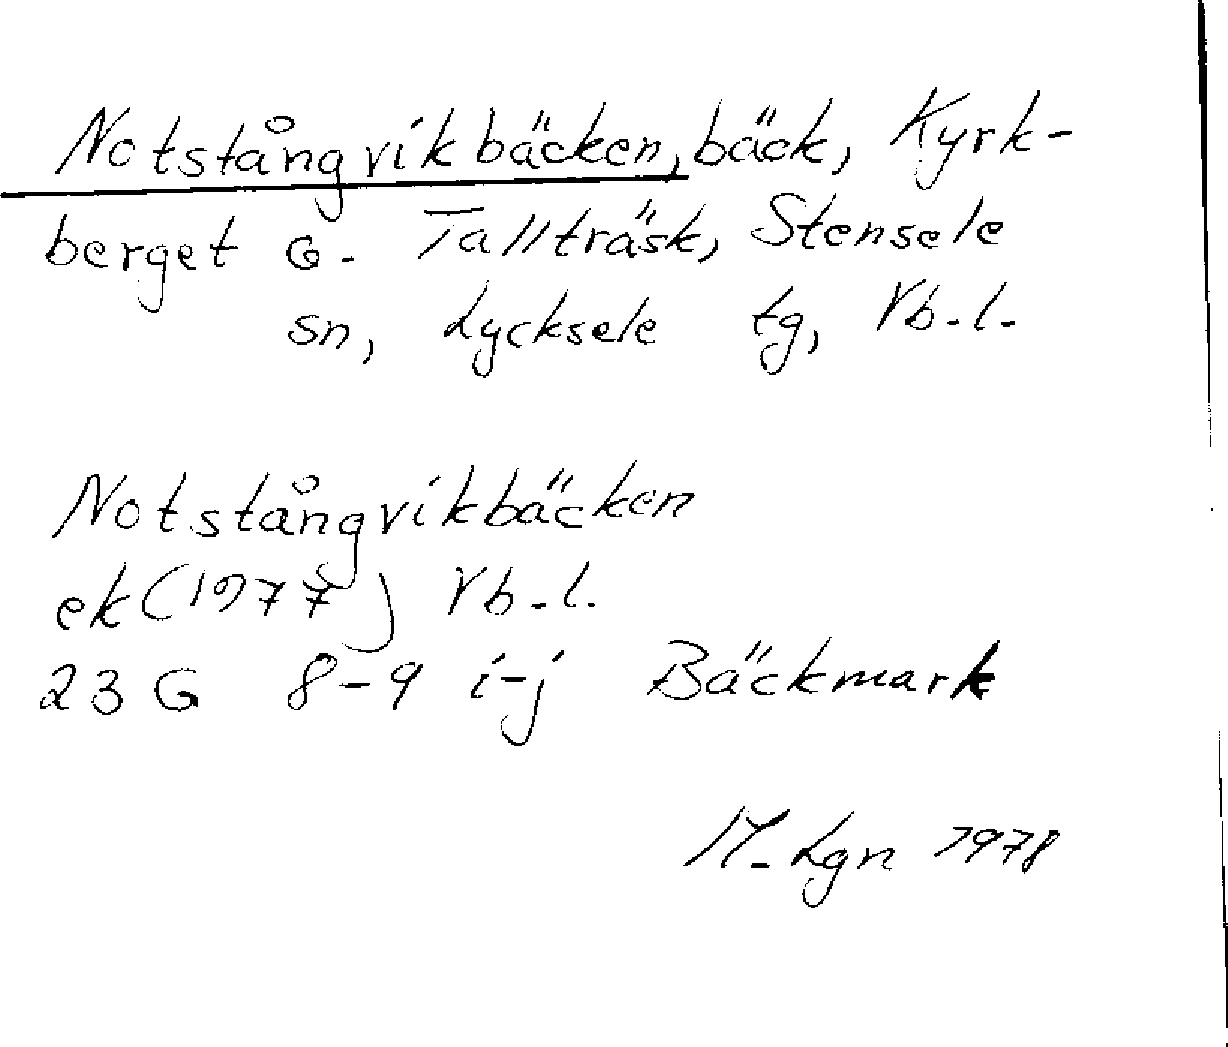 Notstångvikbäcken, bäck, Kyrk-
berget o. Tallträsk, Stensele
sn, Lycksele tg, Vb.l.
Notstångvikbäcken
ek (1977) Vb.l.
23 G 8-9 i-j Bäckmark
M. Lgn 1978